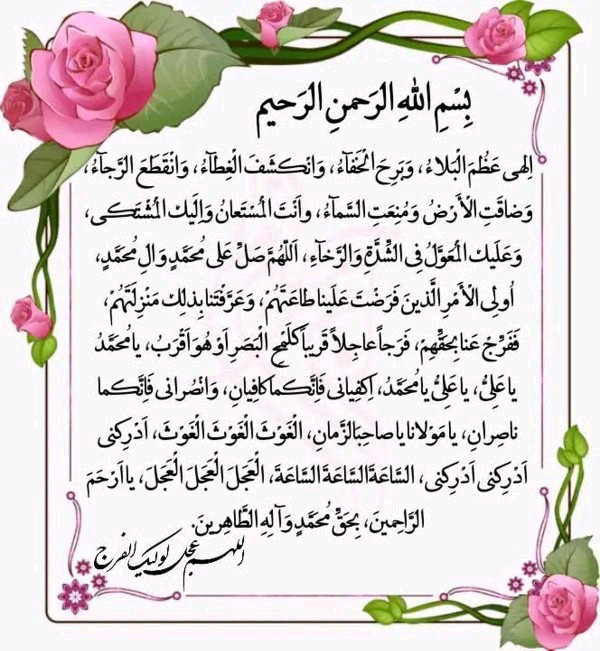 بِسْمِ اللهِ الرَحمنِ الرَحيم
اِلهی عَظُمَ الْبَلاءُ، وَبَرِحَ الْخَفآءُ، وَانْكَشَفَ الْغِطآءُ، وَانْقَطَعَ الرَّجآءُ،
وَضاقَتِ الْأَرْضُ وَمُنِعَتِ السَّمآءُ، وَأنْتَ الْمُسْتَعانُ وَاِلَيْكَ الْمُشْتَكی،
وَعَلَيْكَ الْمُعَوَّلُ فِی الشِّدَّةِ وَالرَّخآءِ، اَللّهُمَّ صَلِّ عَلی مُحَمَّدٍ وَالِ مُحَمَّدٍ،
اُولِی الْأَمْرِ الَّذينَ فَرَضْتَ عَلَيْنا طاعَتَهُمْ، وَعَرَّفْتَنا بِذلِكَ مَنْزِلَتَهُمْ،
فَفَرِّجْ عَنا بِحَقِّهِمْ، فَرَجاً عاجِلاً قَريباً كَلَمْحِ الْبَصَرِ اَوْ هُوَ اَقْرَبُ، يا مُحَمَّدُ
يا عَلِیُّ، يا عَلِیُّ يا مُحَمَّدُ، اِكْفِيانی فَاِنَّكُما كافِيانِ، وَانْصُرانی فَاِنَّكُما
ناصِرانِ، يا مَوْلانا يا صاحِبَ الزَّمانِ، الْغَوْثَ الْغَوْثَ الْغَوْثَ، اَدْرِكْنی
اَدْرِكْنی اَدْرِكْنی، السّاعَةَ السّاعَةَ السّاعَةَ، الْعَجَلَ الْعَجَلَ الْعَجَلَ، يا اَرْحَمَ
الرّاحِمينَ، بِحَقِّ مُحَمَّدٍ وَآلِهِ الطّاهِرينَ.
اللهم عجل لولیک الفرج